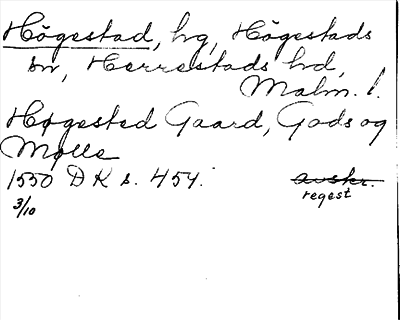 Högestad, hg, Högestads
sn, Herrestads hd,
Malm. l.
Høgested Gaard, Gods og
Mølle
1550 DK s. 454.
avskr.
regest
3/10